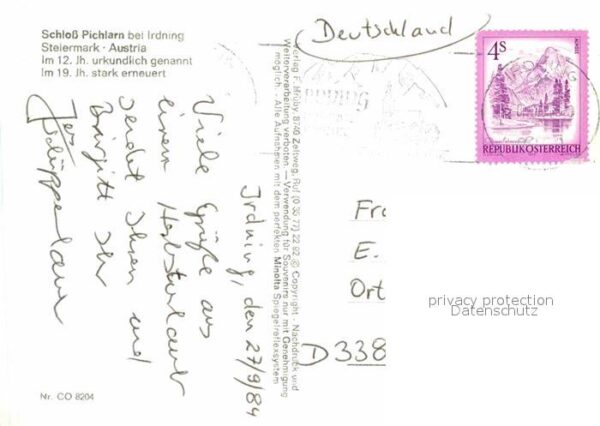 Schloß Pichlarn bei Irdning
Steiermark · Austria
Im 12. Jh. urkundlich genannt
Im 19. Jh. stark erneuert
Deutschland
4S
REPUBLIK ÖSTERREICH
Irdning, den 27/9/84
Viele Grüße aus
einem Herbsturlaub
sendet Ihnen und
Brigitt Ihr
Verlag F. Mroby, 8740 Zeltweg, Ruf (0 35 77) 22 92 © Copyright - Nachdruck und
Weiterverarbeitung verboten. — Verwendung für Souvenirs nur mit Genehmigung
möglich. - Alle Aufnahmen mit dem perfekten Minolta Spiegelreflexsystem
Fra
E.
Ort
D 338
privacy protection
Datenschutz
Nr. CO 8204